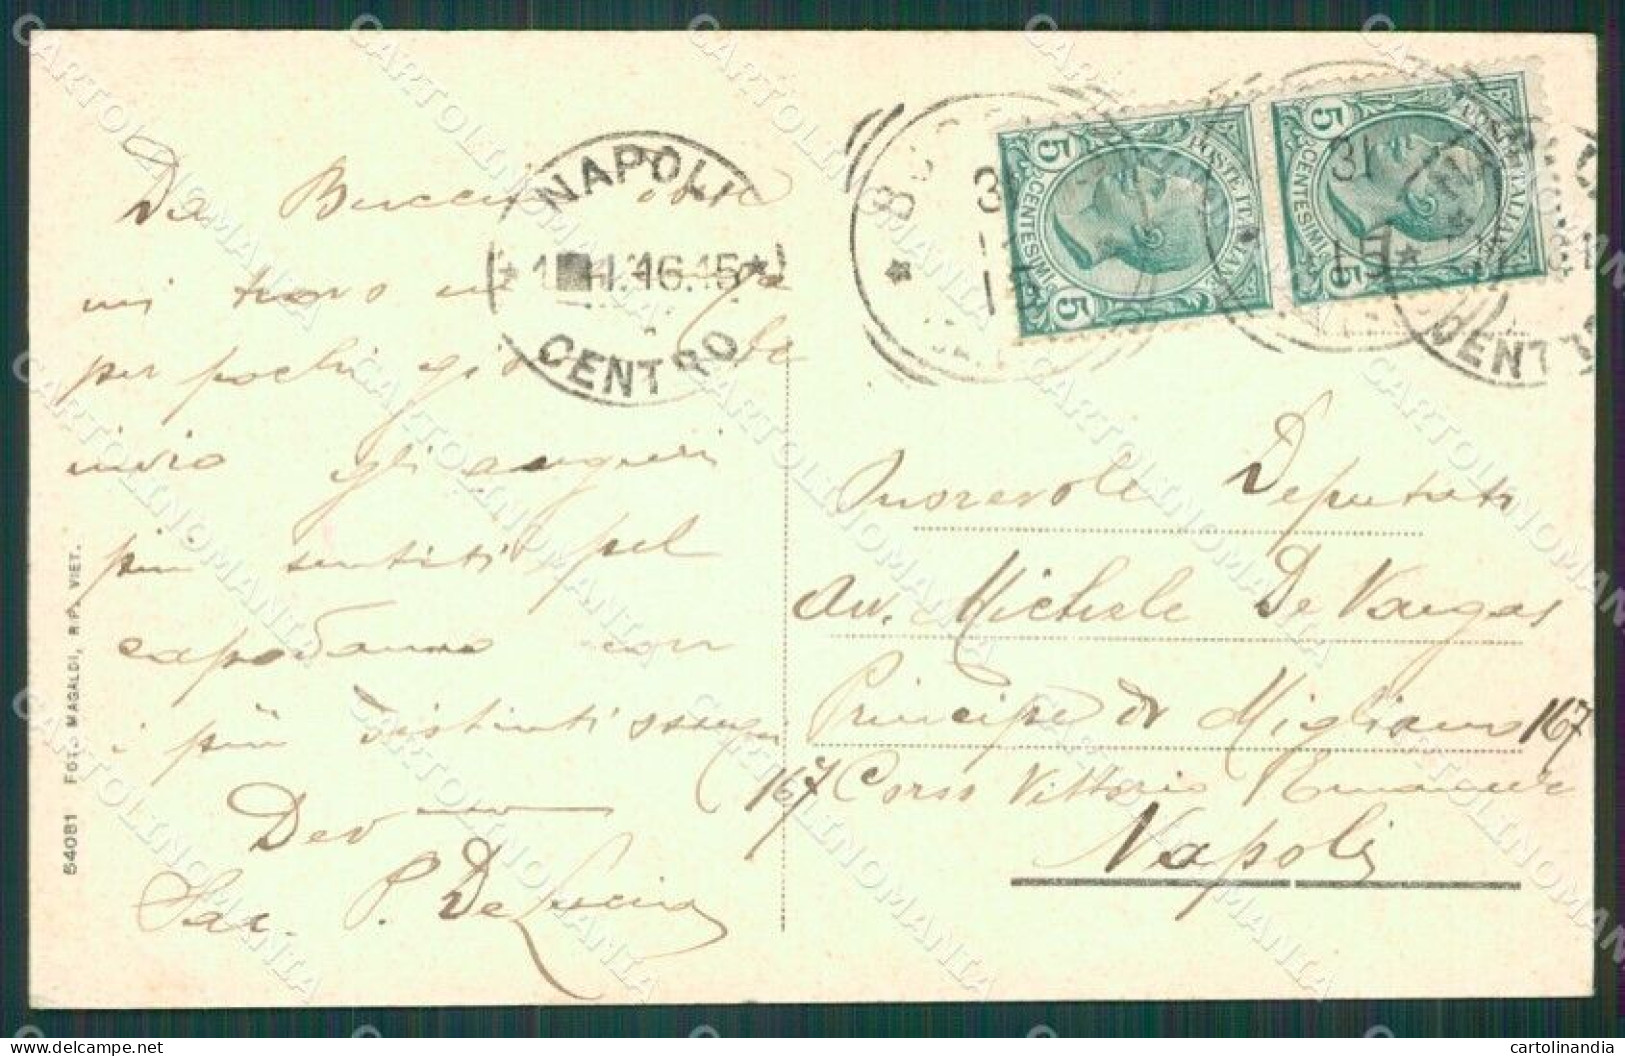 Da Buccino ove
mi trovo in
per pochi gio
invio gli auguri
più sentiti pel
capodanno con
i più distinti ossequi
Dev
Sac. P. De Luccia
54081 FOT. MAGALDI, RIP. VIET.
NAPOLI
1.16.15
CENTRO
31
15
POSTE ITALIANE
CENTESIMI
5
5
31
15
POSTE ITALIANE
CENTESIMI
5
5
CENT
Onorevole Deputato
Av. Michele De Vargas
Principe di Migliano 167
167 Corso Vittorio Emanuele
Napoli
CARTOLINOMANIA
cartolinandia